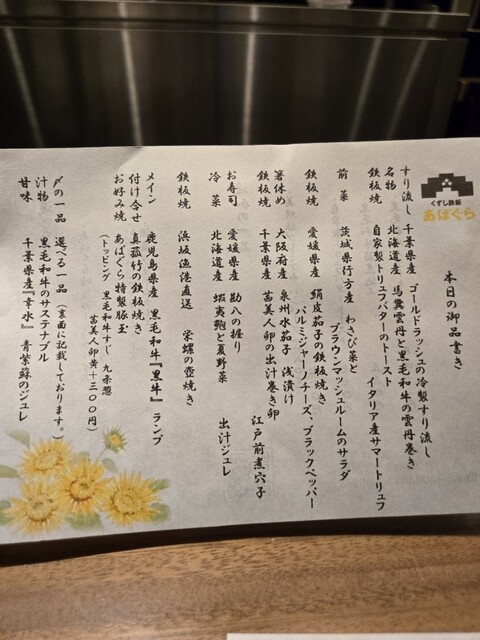 くずし鉄板
あばぐら
本日の御品書き
すり流し 千葉県産 ゴールドラッシュの冷製すり流し
名物 北海道産 馬糞雲丹と黒毛和牛の雲丹巻き
鉄板焼 自家製トリュフバターのトースト イタリア産サマートリュフ
前菜 茨城県行方産 わさび菜と
ブラウンマッシュルームのサラダ
鉄板焼 愛媛県産 絹皮茄子の鉄板焼き
パルミジャーノチーズ、ブラックペッパー
箸休め 大阪府産 泉州水茄子 浅漬け
鉄板焼 千葉県産 菖美人卵の出汁巻き卵 江戸前煮穴子
お寿司 愛媛県産 勘八の握り
冷菜 北海道産 蝦夷鮑と夏野菜 出汁ジュレ
鉄板焼 浜坂漁港直送 栄螺の壺焼き
メイン 鹿児島県産 黒毛和牛『黒牛』ランプ
付け合せ 真菰竹の鉄板焼き
お好み焼 あばぐら特製豚玉
(トッピング 黒毛和牛すじ 九条葱
菖美人卵黄+300円)
〆の一品 選べる一品 (裏面に記載しております。)
汁物 黒毛和牛のサステナブル
甘味 千葉県産『幸水』 青紫蘇のジュレ